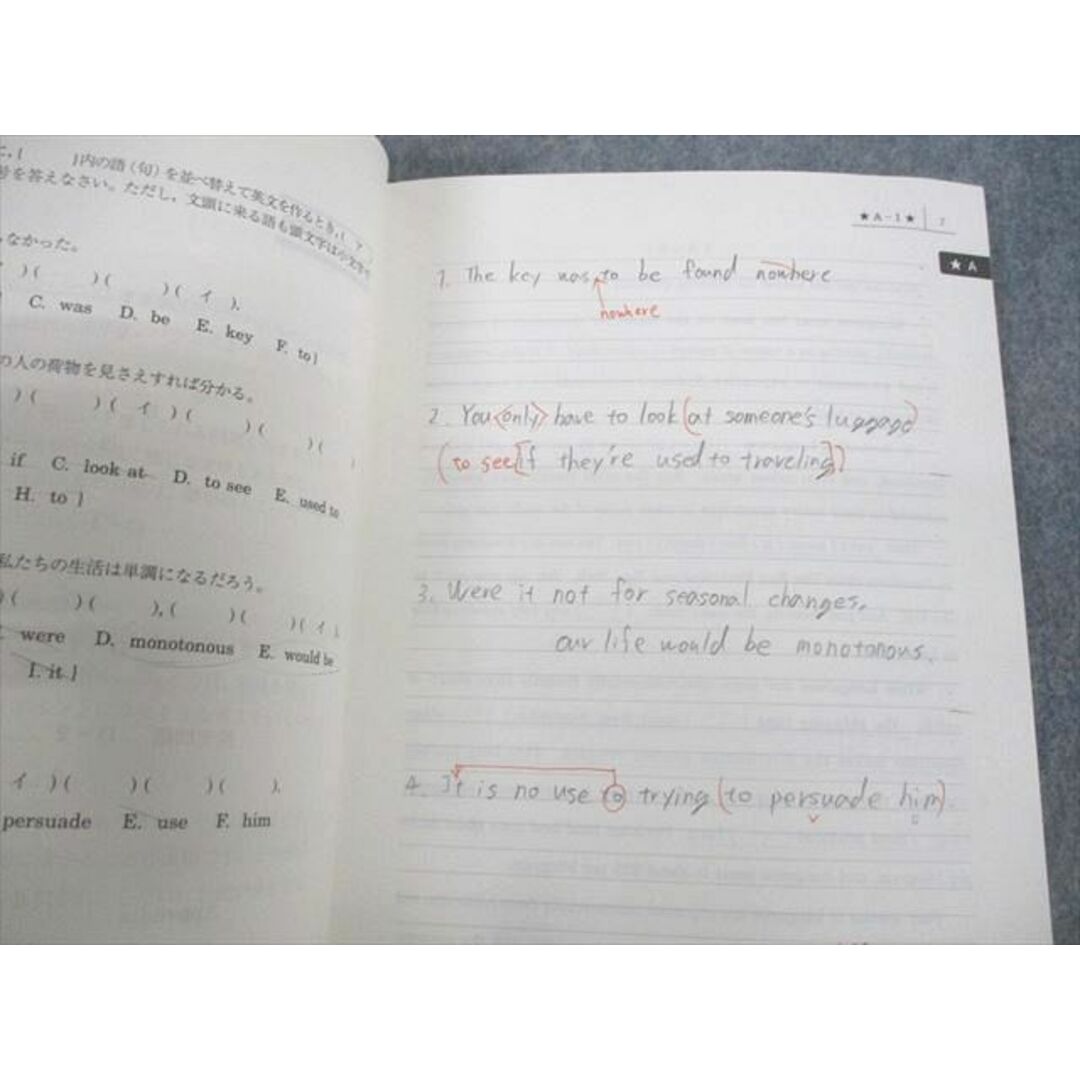 }内の語(句)を並べ替えて英文を作るとき,(ア
号を答えなさい。ただし,文頭に来る語も頭文字は小文字で
なかった。
)( )( )( イ ).
C. was D. be E. key F. to}
の人の荷物を見さえすれば分かる。
)( )( イ )( )( )(
if C. look at D. to see E. used to
H. to }
私たちの生活は単調になるだろう。
)( )( ), ( )( )( イ ).
were D. monotonous E. would be
I. it }
イ )( )( )( ).
persuade E. use F. him
★A-1★ 7
★A
1. The key was to be found nowhere
nowhere
2. You <only> have to look (at someone's luggage)
(to see [if they're used to traveling])
3. Were it not for seasonal changes,
our life would be monotonous.
4. It is no use to trying (to persuade him).